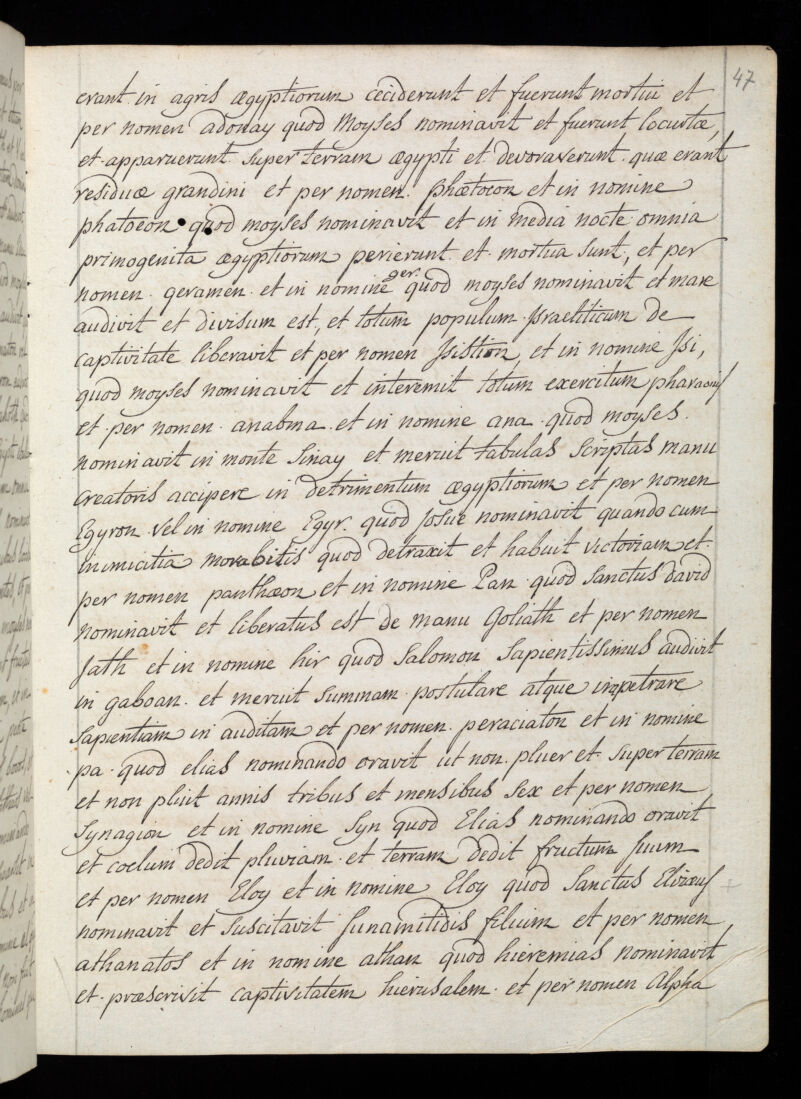 47
erant in agris ægyptiorum ceciderunt et fuerunt mortui et
per nomen adonay quod Moyses nominavit et fuerunt locustæ,
et apparuerunt super terram ægypti et devoraverunt quæ erant
residuæ grandini et per nomen phætocon et in nomine
phatoeon quod moyses nominavit et in media nocte omnia
primogenita ægyptiorum perierunt et mortua sunt, et per
nomen geramen et in nomine ger. quod moyses nominavit et mare
audivit et divisum est, et totum populum Israeliticum de
captivitate liberavit et per nomen Isistion, et in nomine Isi,
quod moyses nominavit et interemit totum exercitum pharaonis
et per nomen anabna et in nomine ana quod moyses
nominavit in monte Sinay et meruit tabulas scriptas manu
creatoris accipere in detrimentum ægyptiorum et per nomen
Egyron vel in nomine Egyr. quod Josue nominavit quando cum
inimicitia morabitis quod detraxit et habuit victoriam et
per nomen panthæon et in nomine Pan quod Sanctus David
nominavit et liberatus est de manu Goliath et per nomen
Jath et in nomine hir quod Salomon Sapientissimus audivit
in gaboan et meruit summam postulare atque impetrare
sapientiam in auditam et per nomen peraciaton et in nomine
pa quod elias nominando oravit ut non pluer et super terram
et non pluit annis tribus et mensibus sex et per nomen
Synagion et in nomine Syn quod Elias nominando oravit
et coelum dedit pluviam et terram dedit fructum suum
et per nomen Eloy et in nomine Eloy quod Sanctus Elizæus
nominavit et suscitavit Sunamitidis filium et per nomen
athanatos et in nomine athan quod hieremias nominavit
et præscrivit captivitatem hierusalem et per nomen Alpha